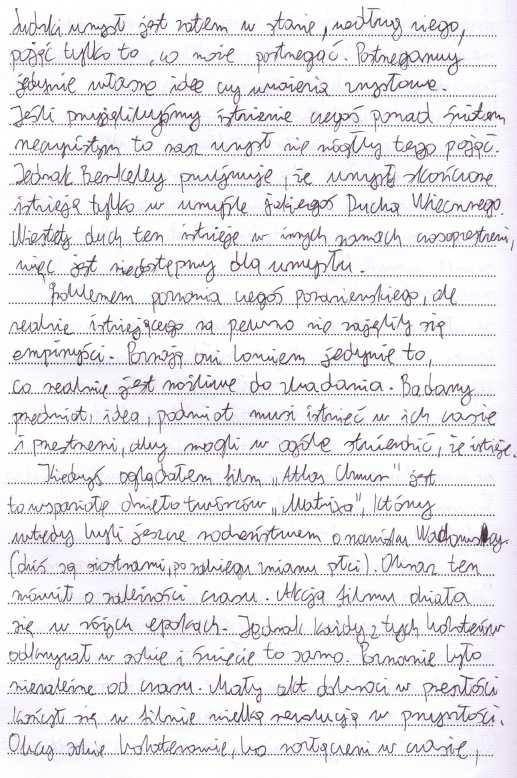 Ludzki umysł jest zatem w stanie, według niego,
pojąć tylko to, co może postrzegać. Postrzegamy
jedynie własne idee czy wrażenia zmysłowe.
Jeśli przyjęlibyśmy istnienie czegoś ponad światem
rzeczywistym to nasz umysł nie mógłby tego pojąć.
Jednak Berkeley przyjmuje, że umysły skończone
istnieją tylko w umyśle jakiegoś Ducha Wiecznego.
Niestety duch ten istnieje w innych ramach czasoprzestrzeni,
więc jest niedostępny dla umysłu.
Problemem poznania czegoś pozaziemskiego, ale
realnie istniejącego na pewno nie zajęliby się
empiryści. Poznają oni bowiem jedynie to,
co realnie jest możliwe do zbadania. Badany
przedmiot, idea, podmiot musi istnieć w ich czasie
i przestrzeni, aby mogli w ogóle stwierdzić, że istnieje.
Kiedyś oglądałem film "Atlas Chmur" jest
to wspaniałe dzieło twórców "Matrixa", którzy
wtedy byli jeszcze rodzeństwem o nazwisku
(dziś są siostrami, po zabiegu zmiany płci). Obraz ten
mówił o zależności czasu. Akcja filmu działa
się w różnych epokach. Jednak każdy z tych bohaterów
odkrywał w sobie i świecie to samo. Poznanie było
niezależne od czasu. Mały akt dobroci w przeszłości
kończył się w filmie wielką rewolucją w przyszłości.
Obcy sobie bohaterowie, bo rozłączeni w czasie,